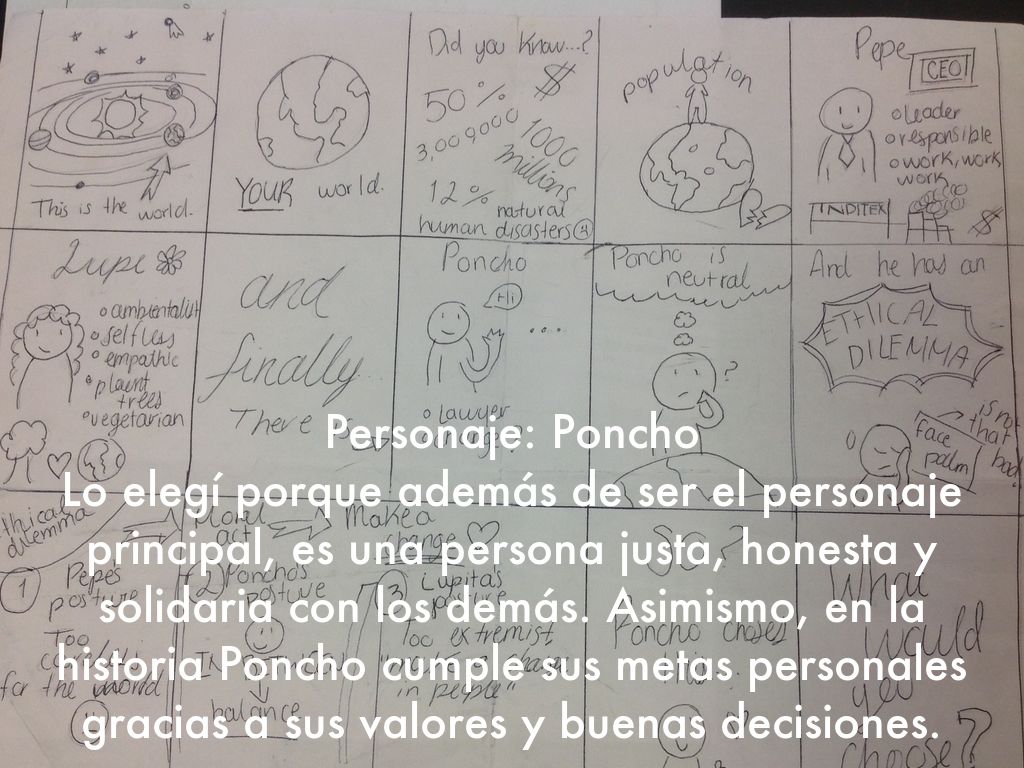 This is the world.
YOUR world.
Did you know...?
50%
$
3,009000
1000
millions
12% natural
human disasters
population
Pepe
CEO
leader
responsible
work, work
work
INDITEX
$
Lupe
ambientalist
selfless
empathic
plaunt
trees
vegetarian
and
finally...
There is
Poncho
Hi
...
lawyer
Poncho is
neutral
?
And he has an
ETHICAL
DILEMMA
face
palm
is not
that
bad!
Personaje: Poncho
Lo elegí porque además de ser el personaje
principal, es una persona justa, honesta y
solidaria con los demás. Asimismo, en la
historia Poncho cumple sus metas personales
gracias a sus valores y buenas decisiones.
ethical
dilemma
Moral
act
Make a
change
1 Pepe's
posture
Too
for the world
2 Poncho's
posture
balance
3 Lupitas
posture
Too extremist
in people"
So?
Poncho choses
this:
What
would
you
choose?